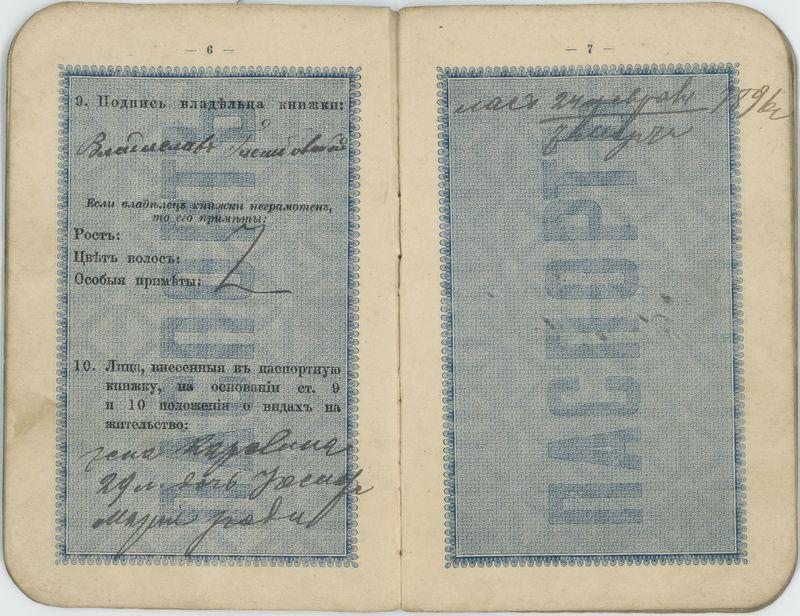 — 6 —
9. Подпись владѣльца книжки:
Владиславъ
Если владѣлецъ книжки неграмотенъ,
то его примѣты:
Ростъ:
Цвѣтъ волосъ:
Особыя примѣты:
10. Лица, внесенныя въ паспортную
книжку, на основаніи ст. 9
и 10 положенія о видахъ на
жительство:
жена Каролина
29 л дочь
Марія
ПАСПОРТЪ
— 7 —
лась 24 февраля 1896 г
ПАСПОРТЪ